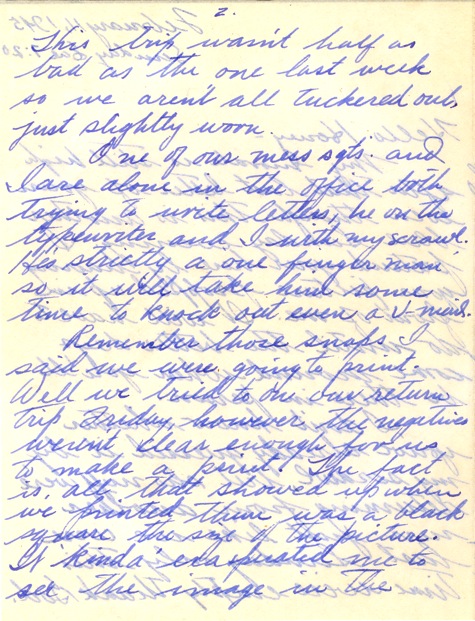 2.
This trip wasn't half as
bad as the one last week
so we aren't all tuckered out,
just slightly worn.
One of our mess sgts. and
I are alone in the office both
trying to write letters, he on the
typewriter and I with my scrawl.
He's strictly a one finger man
so it will take him some
time to knock out even a V-mail.
Remember those snaps I
said we were going to print.
Well we tried to on our return
trip Friday, however the negatives
weren't clear enough for us
to make a print. The fact
is, all that showed up when
we printed them was a black
square the size of the picture.
It kinda' exasperated me to
see the image in the